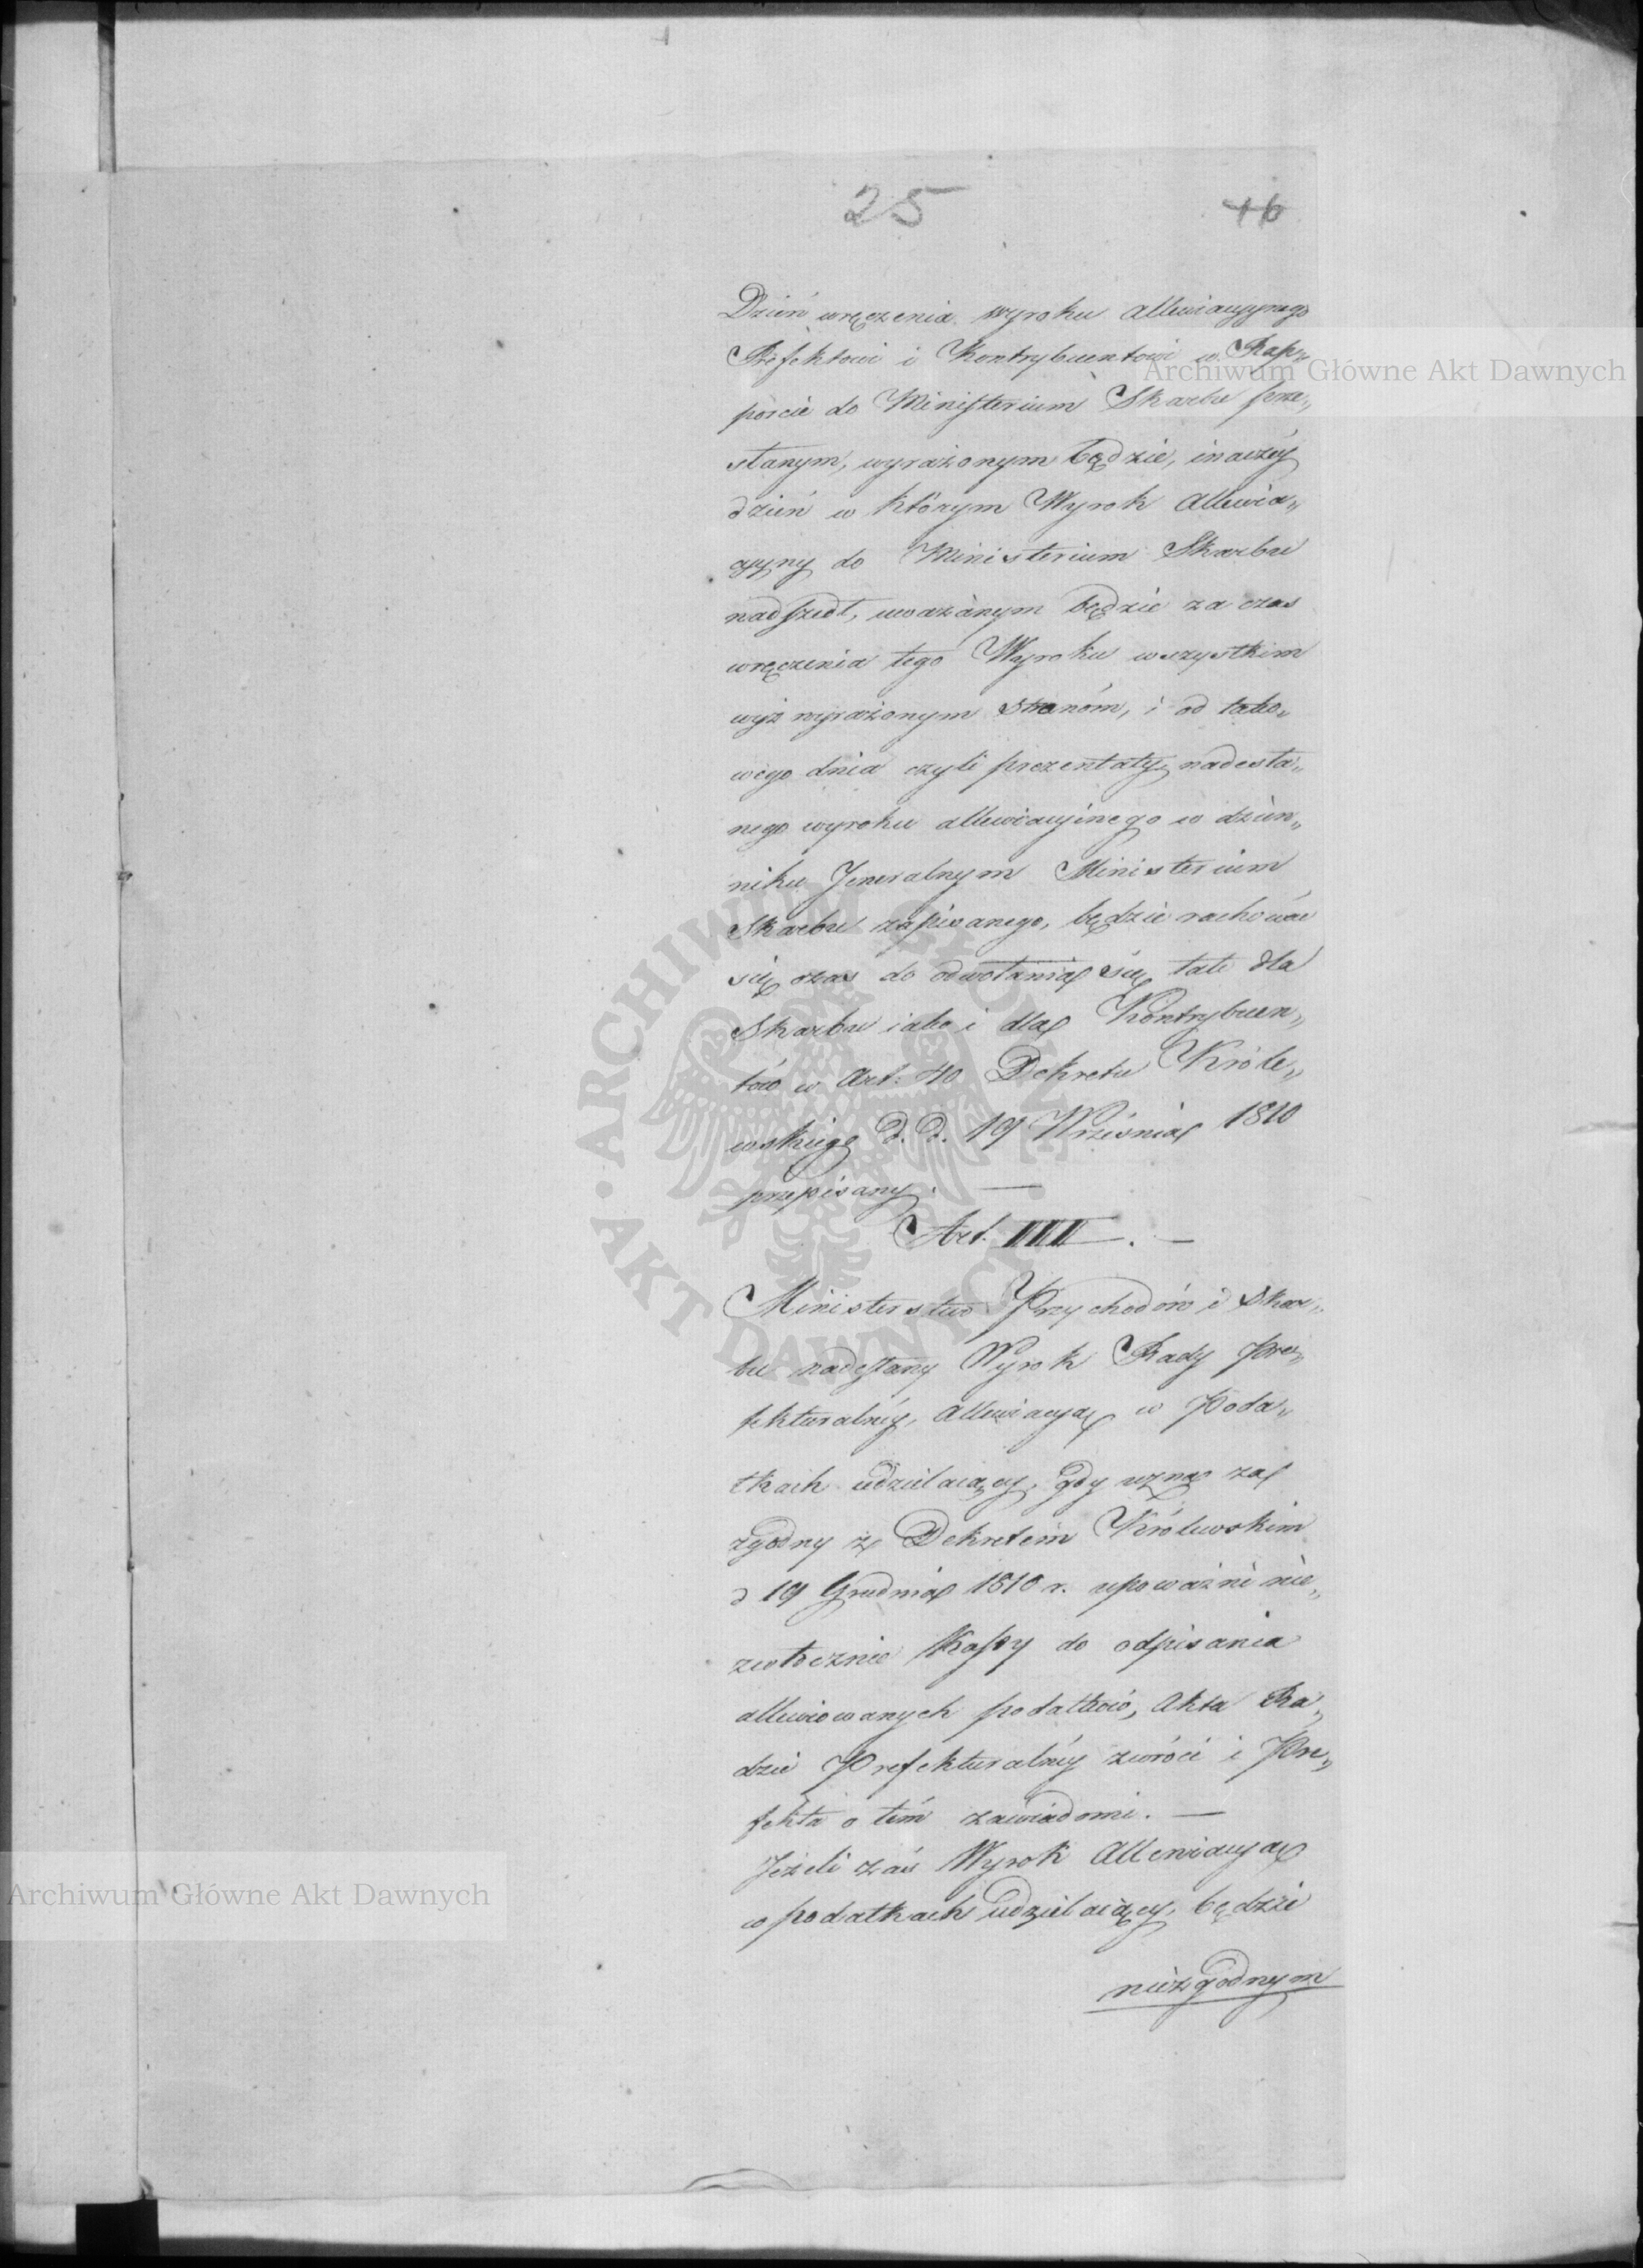 25 16
Dzień wręczenia wyroku allewiacyynego
Prefektowi i Kontrybuentowi w Rap„
porcie do Ministerium Skarbu prze„
słanym, wyrażonym będzie, inaczéy
dzień w którym Wyrok allewia„
cyyny do Ministerium Skarbu
nadszedł, uważanym będzie za czas
wręczenia tego Wyroku wszystkim
wyż wyrażonym stronóm, i od tako„
wego dnia czyli prezentaty nadesła„
nego wyroku allewiacyinego w dzien„
niku Jeneralnym Ministerium
Skarbu zapisanego, będzie rachować
się czas do odwołania się tak dla
Skarbu iako i dla Kontrybuen„
tów w Art: 40 Dekretu Króle„
wskiego d. d. 19 Września 1810
przepisany. —
Art. IIII. —
Ministerstwo Przychodów i Skar„
bu nadesłany Wyrok Rady Pre„
fekturalnéy, allewiacyą w Poda„
tkach udzielaiący, gdy uzna za
zgodny z Dekretem Królewskim
d 19 Grudnia 1810 r. upoważni nie„
zwłocznie Kassy do odpisania
allewiowanych podatków, Akta Ra„
dzie Prefekturalnéy zwróci i Pre„
fekta o tém zawiadomi. —
Jeżeli zaś Wyrok Allewiacyą
w podatkach udzielaiący, będzie
niezgodnym
Archiwum Główne Akt Dawnych
Archiwum Główne Akt Dawnych
ARCHIWUM GŁÓWNE
AKT DAWNYCH